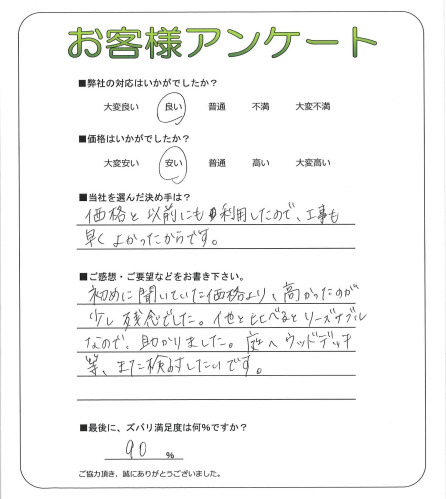 お客様アンケート
■弊社の対応はいかがでしたか?
大変良い 良い 普通 不満 大変不満
■価格はいかがでしたか?
大変安い 安い 普通 高い 大変高い
■当社を選んだ決め手は?
価格と以前にも利用したので、工事も
早くよかったからです。
■ご感想・ご要望などをお書き下さい。
初めに聞いていた価格より、高かったのが
少し残念でした。他と比べるとリーズナブル
なので、助かりました。庭へウッドデッキ
等、また検討したいです。
■最後に、ズバリ満足度は何%ですか?
90 %
ご協力頂き、誠にありがとうございました。